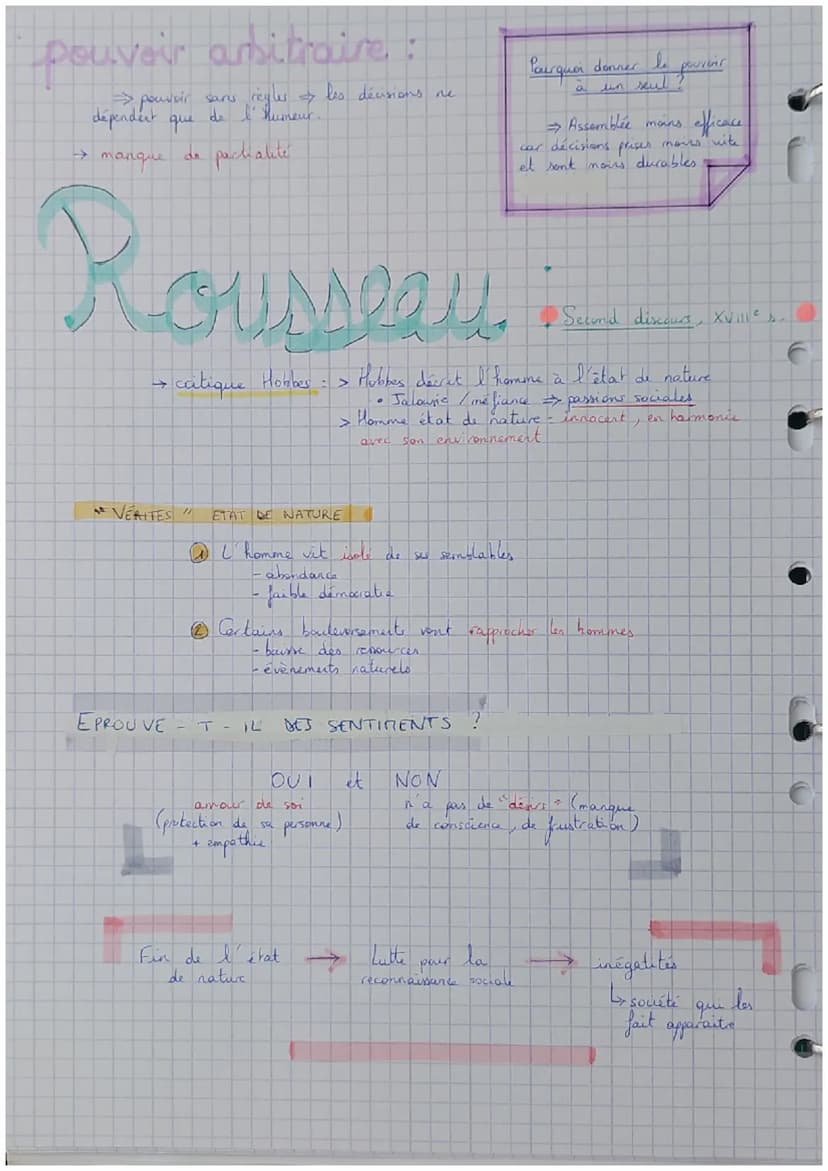 pouvoir arbitraire :
⇒ pouvoir sans règles ⇒ les décisions ne
dépendent que de l'humeur.
→ manque de partialité
Pourquoi donner le pouvoir
à un seul ?
⇒ Assemblée moins efficace
car décisions prises moins vite
et sont moins durables
Rousseau :
Second discours, XVIIIe s.
→ critique Hobbes : > Hobbes décrit l'homme à l'état de nature
• Jalousie / méfiance ⇒ passions sociales
> Homme état de nature = innocent, en harmonie
avec son environnement
"VÉRITES" ETAT DE NATURE
1 L'homme vit isolé de ses semblables
- abondance
- faible démocratie
2 Certains bouleversements vont rapprocher les hommes
- baisse des ressources
- évènements naturels
EPROUVE - T - IL DES SENTIMENTS ?
OUI et NON
amour de soi
(protection de sa personne)
+ empathie
n'a pas de "désirs" (manque
de conscience, de frustration)
Fin de l'état
de nature
→ Lutte pour la
reconnaissance sociale
→ inégalités
↳ société qui les
fait apparaitre